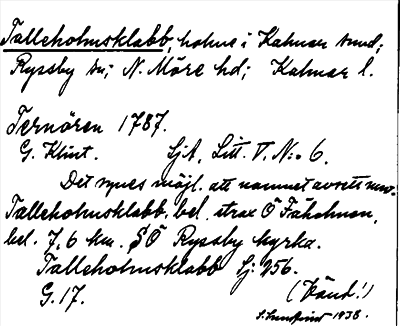 Talleholmsklabb, holme i Kalmar sund;
Ryssby sn; N. Möre hd; Kalmar l.
Ternören 1787.
G. Klint. SjA, Litt. V. N:o 6.
Det synes möjl. att namnet avsetts nuv.
Talleholmsklabb, bel. strax Ö Fåholmen,
bel. 7,6 km. SÖ Ryssby kyrka.
Talleholmsklabb Sj: 256.
G. 17. (Känt!)
1938.